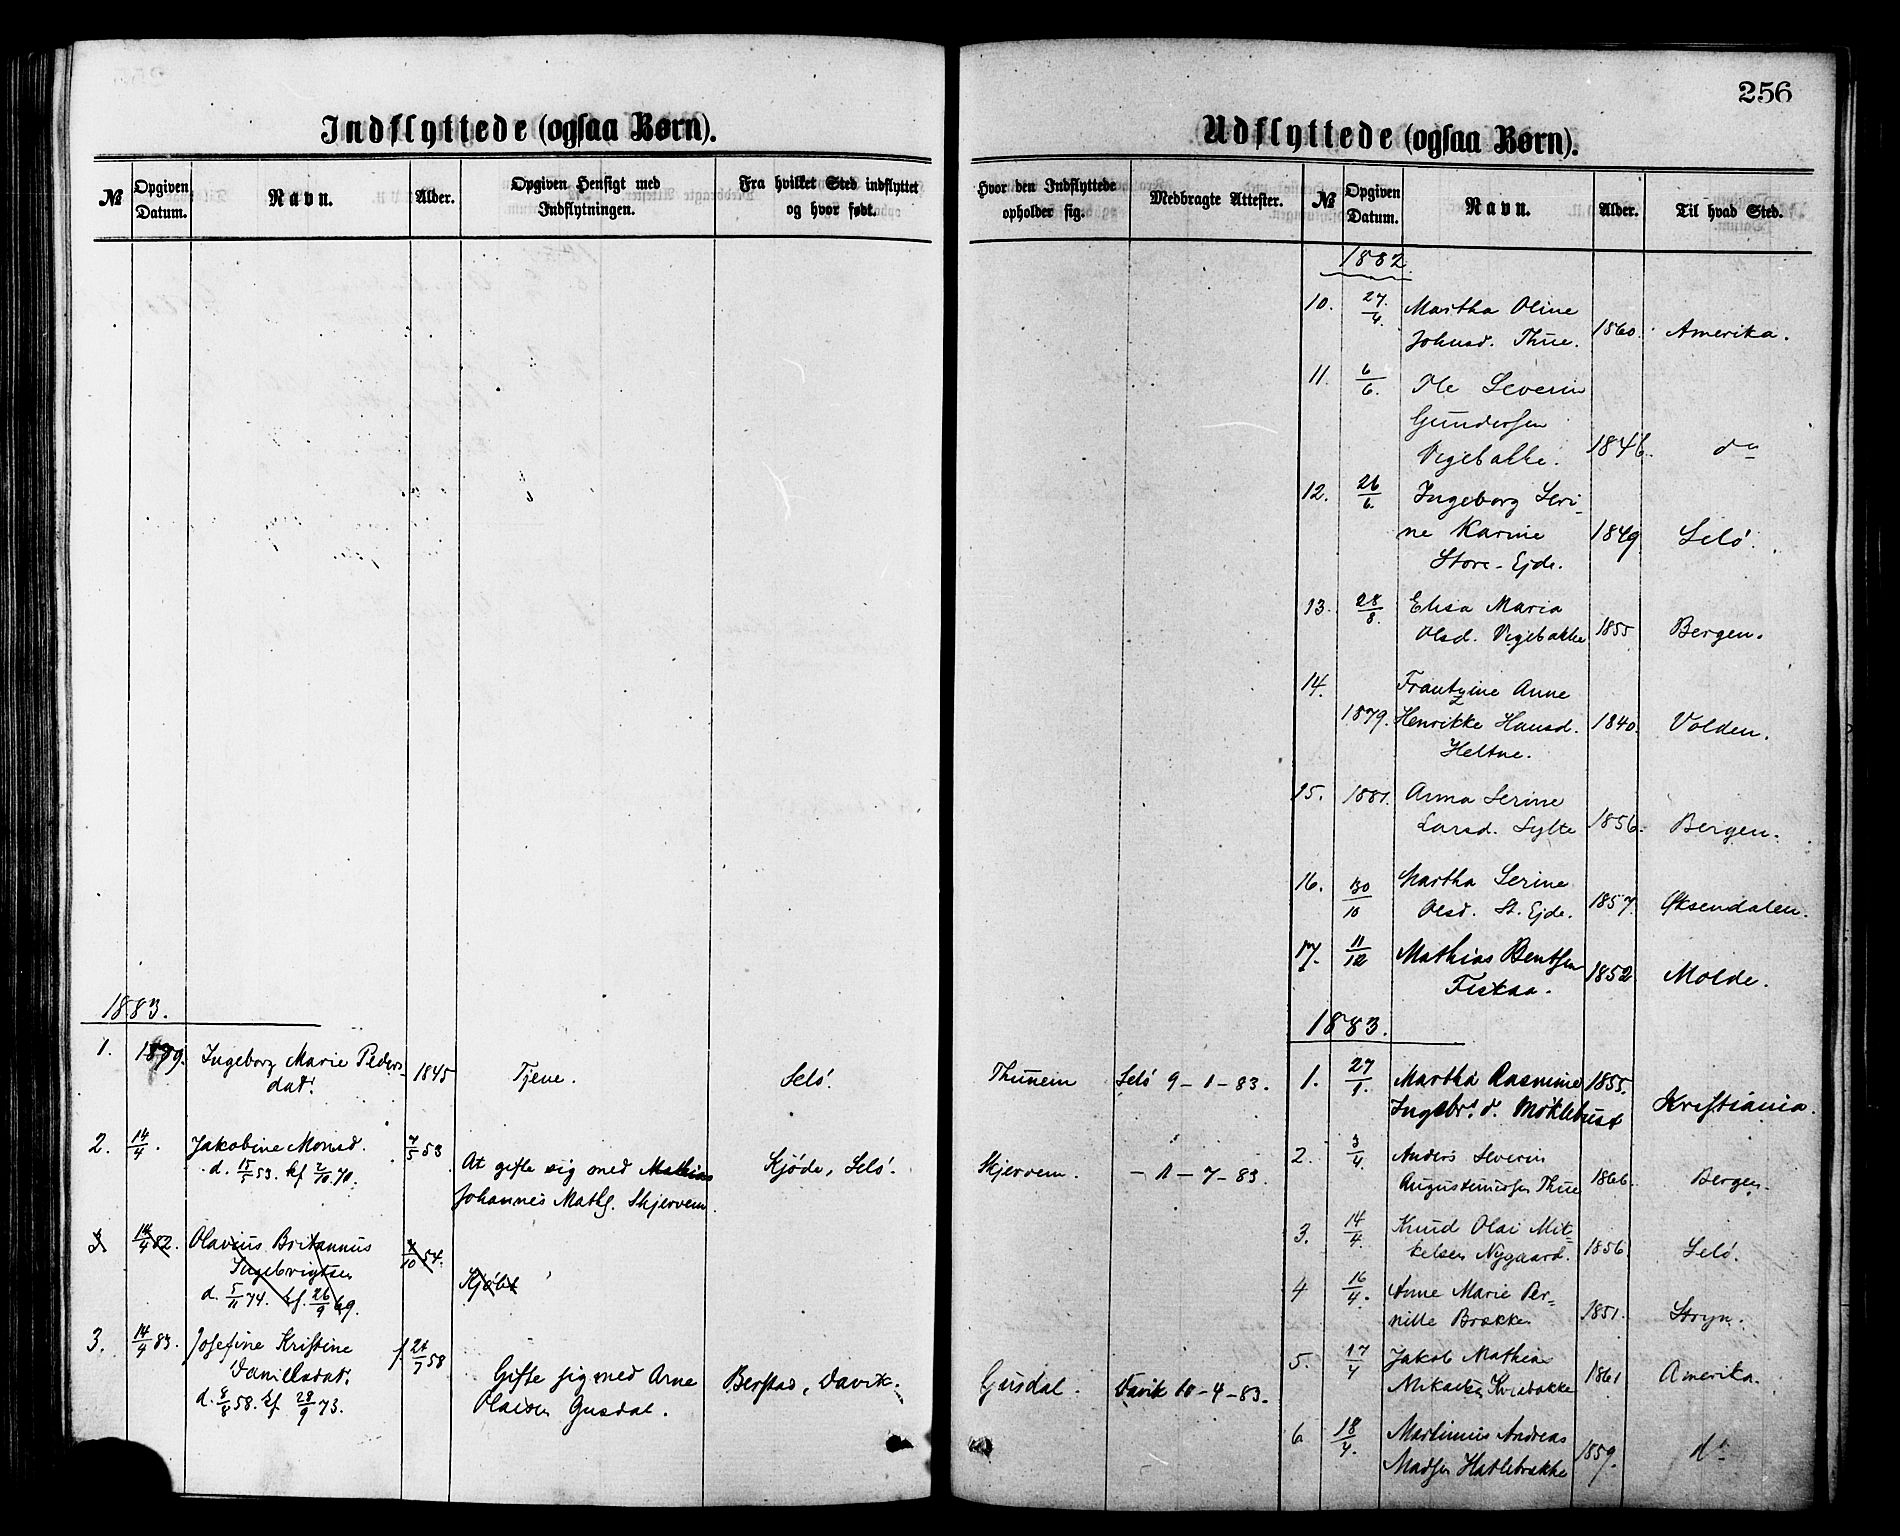 256
Indflyttede (ogsaa Børn).
№ Opgiven Datum. Navn. Alder. Opgiven Hensigt med Indflytningen. Fra hvilket Sted indflyttet og hvor født.
1883.
1. 1879. Ingeborg Marie Peders- 1845 Tjene. Selö. Thunem Selö 9-1-83.
dat.
2. 14/4. Jakobine Monsd. 7/5 53 At gifte sig med Mathias Kjöde, Selö. Skjervem. - 11-7-83.
d. 15/5 53. kf 2/10 70. Johannes Maths. Skjervem.
3 14/4 82. Olavius Britannus 4/10 54. Kjøbt
Ingebrigtsen
d. 5/11 74. kf. 26/9 69.
3. 14/4 83. Josefine Kristine f. 21/7 58 Gifte sig med Arne Berstad, Davik. Gusdal. Davik 10-4-83.
Danielsdat. Olaisen Gusdal.
d. 8/8 58. kf 28/9 73.
Udflyttede (ogsaa Børn).
Hvor den Indflyttede opholder sig. Medbragte Attester. № Opgiven Datum. Navn. Alder. Til hvad Sted.
1882.
10. 27./4. Martha Oline
Johnsd. Thue. 1860. Amerika.
11. 6/6. Ole Severin
Gundersen
Vegebakke. 1846. do
12. 26/6. Ingeborg Seri-
ne Karine 1849 Selö.
Store-Ejde.
13. 28/8. Elisa Maria
Olsd. Vegebakke 1855 Bergen.
14. Frantzine Anne
1879. Henrikke Hansd. 1840. Volden.
Heltne.
15. 1881. Anna Serine
Larsd. Sylte 1856. Bergen.
16. 30/10 Martha Serine
Olsd. St. Ejde. 1857. Øksendalen.
17. 11/12 Mathias Bentsen
Fiskaa. 1852 Molde.
1883.
1. 27/1. Martha Rasmine 1855.
Ingebr. d. Möklebust Kristiania.
2. 3/4. Anders Severin
Augustinusen Thue 1866. Bergen.
3. 14/4. Knud Olai Mik-
kelsen Nygaard. 1856. Selö.
4 16/4. Anne Marie Per-
nille Brække 1851. Stryn.
5. 17/4 Jakob Mathias
1861 Amerika.
6 18/4. Martinus Andreas
Madsen Hatlebrække 1859. do